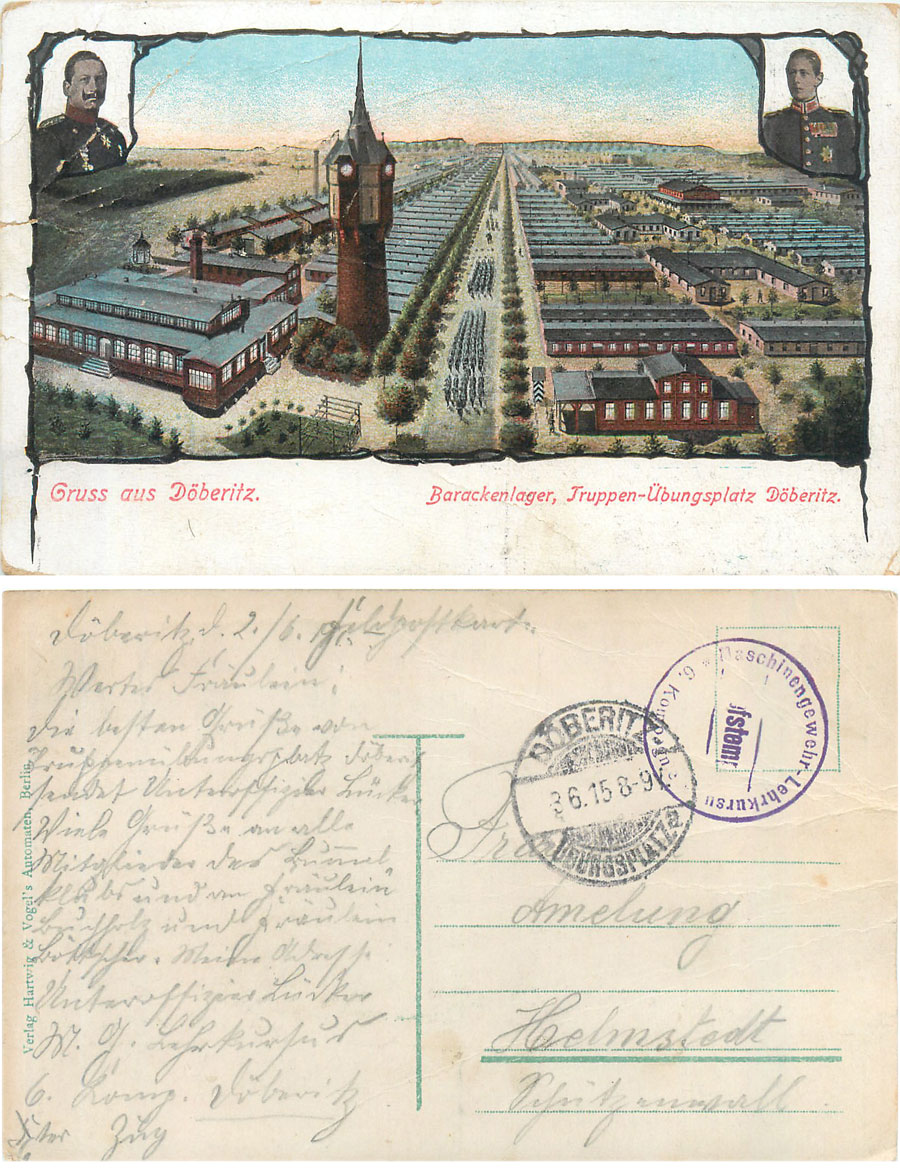 Gruss aus Döberitz.
Barackenlager, Truppen-Übungsplatz Döberitz.
Döberitz d. 2./6. Feldpostkarte
Wertes Fräulein!
Die besten Grüße von
Truppenübungsplatz Döberitz
sendet Unteroffizier Lücker
Viele Grüße an alle
Mitglieder des Bummel
klubs und an Fräulein
Buchholz und Fräulein
Böttcher. Meine Adresse:
Unteroffizier Lücker
M. G. Lehrkursus
6. Komp. Döberitz
ter Zug
Verlag Hartwig & Vogel's Automaten, Berlin
DÖBERITZ
6.15 8-9
ÜBUNGSPLATZ
Maschinengewehr-Lehrkursus
6. Komp.
Amelung
Helmstedt
Schützenwall